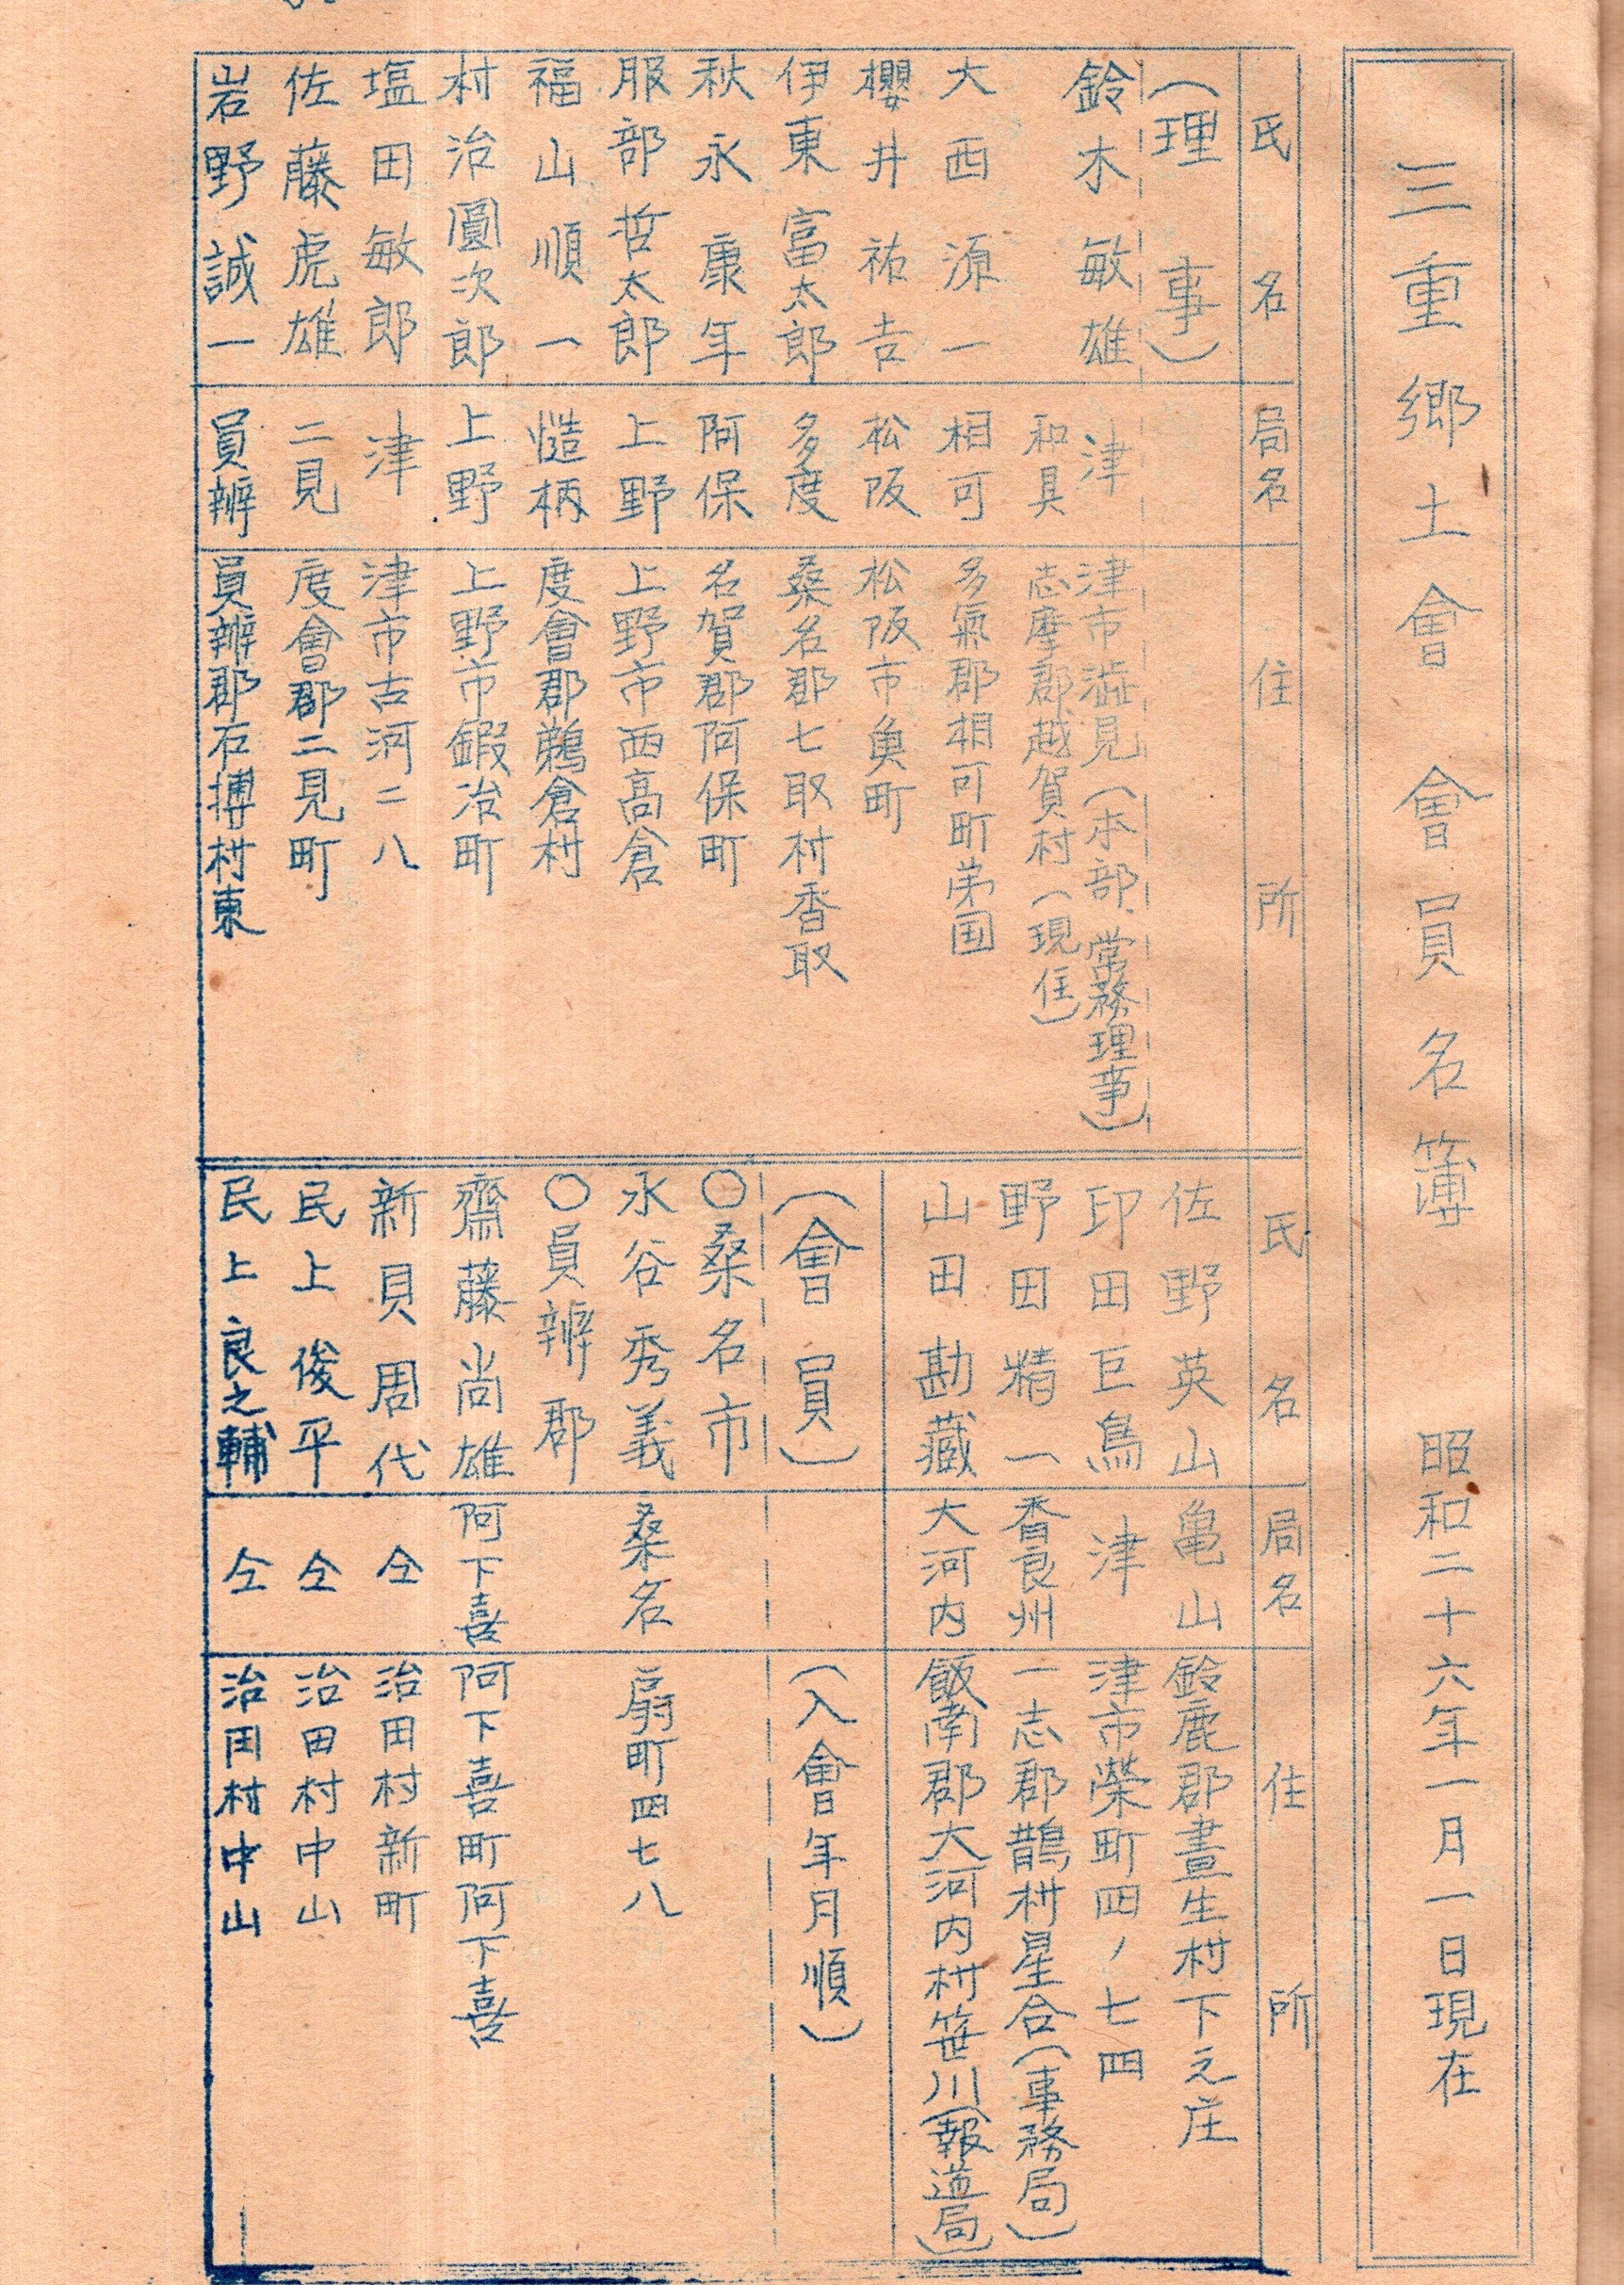 三重郷土會 會員名簿 昭和二十六年一月一日現在
氏名 局名 住所
(理事)
鈴木敏雄 津 津市澁見(本部、常務理事)
和具 志摩郡越賀村(現住)
大西源一 相可 多氣郡相可町弟国
櫻井祐吉 松阪 松阪市魚町
伊東富太郎 多度 桑名郡七取村香取
秋永康年 阿保 名賀郡阿保町
服部哲太郎 上野 上野市西高倉
福山順一 慥柄 度會郡鵜倉村
村治圓次郎 上野 上野市鍛冶町
塩田敏郎 津 津市古河二八
佐藤虎雄 二見 度會郡二見町
岩野誠一 員辨 員辨郡石搏村東
氏名 局名 住所
佐野英山 亀山 鈴鹿郡晝生村下之庄
印田巨鳥 津 津市榮町四ノ七四
野田精一 香良州 一志郡鵲村星合(事務局)
山田勘藏 大河内 飯南郡大河内村笹川(報道局)
(會員) (入會年月順)
○桑名市
永谷秀義 桑名 扇町四七八
○員辨郡
齋藤尚雄 阿下喜 阿下喜町阿下喜
新貝周代 仝 治田村新町
民上俊平 仝 治田村中山
民上良之輔 仝 治田村中山